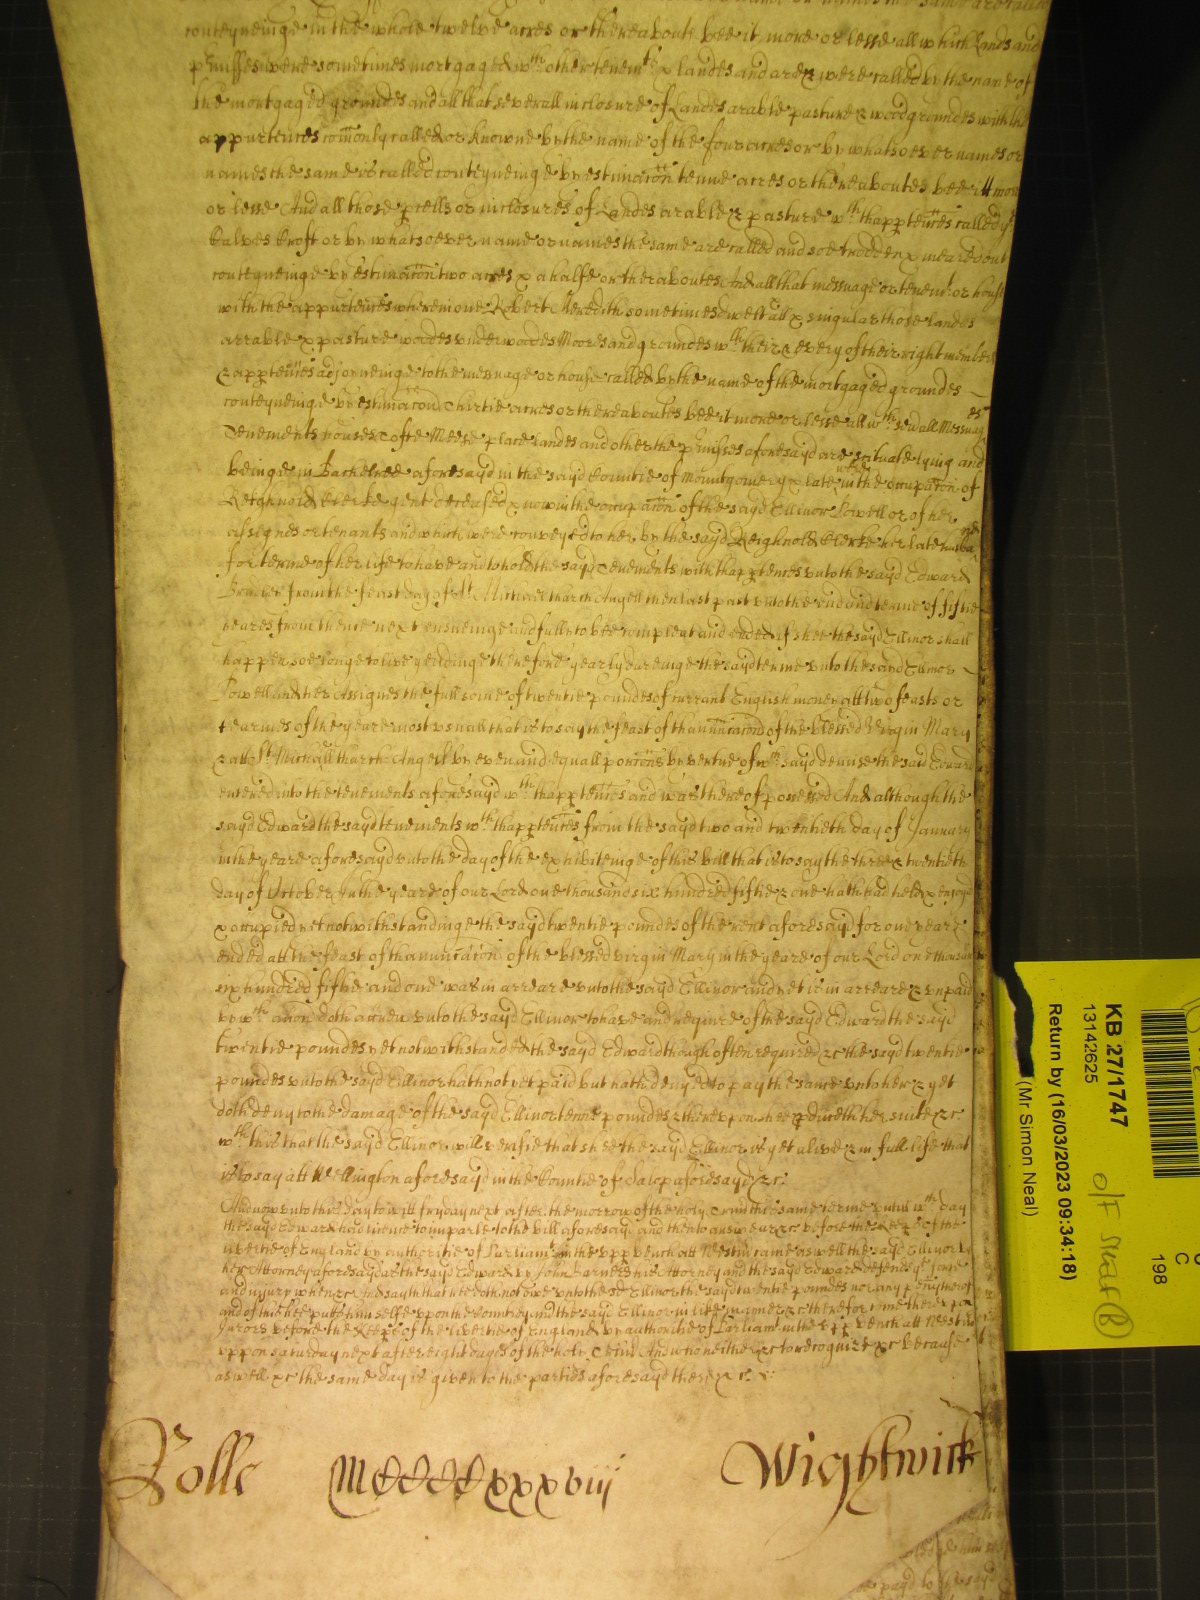 conteyneinge in the whole twelve acres or thereabouts bee it more or lesse all which Lands and
p'misses were sometimes mortgaged wth other tenemts & landes and are & were called by the name of
the mortgaged groundes and all that severall inclosure of Landes arable pasture & woodgroundes with the
appurtences comonly called or knowne by the name of the four acres or by whatsoever names or
names the same is called conteyneinge by estimacon tenne acres or thereaboutes bee itt more
or lesse And all those p'cells or inclosures of Landes arable & pasture wth thapptences called ye
Calves Croft or by whatsoever name or names the same are called and soe trodden & meared out
conteyneinge by estimacon two acres & a halfe or theraboutes And all that messuage or tenemt or house
with the appurtences wherein one Robert Meredith sometimes dwelt all & singular those landes
arrable & pasture woodes underwoodes Moores and groundes wth their & every of their right members
& apptences adjoyneinge to the messuage or house called by the name of the mortgaged groundes
conteyneinge by estimacon Thirtie acres or thereaboutes bee it more or lesse all wch sevrall Messuages
Tenements houses Tofte Meese place landes and other the p'misses aforesayd are scituate lying and
beinge in Bacheltree aforesayd in the sayd Countie of Mountgomery & late were in the occupacon of
Reighnold Clerke gent deceased & now in the occupacon of the sayd Ellinor Powell or of her
assignes or tenants and which were conveyed to her by the sayd Reighnold Clerke her late husband
for terme of her life to have and to hold the sayd Tenements with thapptences unto the sayd Edward
from the feast day of St Michael tharch Angell then last past unto the end and terme of fiftie
yeares from thence next ensueinge and fully to bee compleat and ended if shee the sayd Ellinor shall
happen soe longe to live yeildinge therefore yearly dureinge the sayd terme unto the sayd Ellinor
Powell and her Assignes the full some of twentie poundes of currant English money att two feasts or
tearmes of the yeare most usuall that is to say the feast of thannunciacon of the blessed Virgin Mary
& att St Michaell tharch Angell by even and equall porcons by vertue of wch sayd demise the said Edward
entered into the tenements aforesayd wth thapptences and was thereof possessed And although the
sayd Edward the sayd tenements wth thapptences from the sayd two and twentieth day of January
in the yeare aforesayd unto the day of the exhibiteinge of this bill that is to say the three & twentieth
day of October In the yeare of our Lord one thousand six hundred fiftie & one hath had held & enjoyed
& occupied yet notwithstandinge the sayd twentie poundes of the rent aforesayd for one yeare
ended att the feast of thannunciacon of the blessed virgin Mary in the yeare of our Lord one thousand
six hundred fiftie and one was in arreare unto the sayd Ellinor and yet is in arreare & unpaid
by wch accon doth accrew unto the sayd Ellinor to have and require of the sayd Edward the sayd
twentie poundes yet notwithstanded the sayd Edward though often required &c the sayd twentie
poundes unto the sayd Ellinor hath not yet paid but hath denyed to pay the same unto her & yet
doth deny to the damage of the sayd Ellinor tenne poundes & thereupon shee p'duceth her suite &c
wth this that the sayd Ellinor will verifie that shee the sayd Ellinor is yet alive & in full life that
is to say att Wellington aforesayd in the Countie of Salop aforesayd &c:
And now unto this day to witt fryday next after the morrow of the holy Trinitie this same terme untill wch day
the sayd Edward had licence to imparle to the bill aforesayd and then to answeare &c before the Keeps of the
libertie of England by authoritie of Parliamt in the upp bench att Westm came aswell the sayd Ellinor by
her Attorney aforesayd as the sayd Edward by John Barnes his Attorney and the sayd Edward defendes ye force
and injury when &c And sayth that hee doth not owe unto the sd Ellinor the sayd twentie poundes nor any peny thereof
and of this hee putts himselfe uppon the Countie and the sayd Ellinor in like manner &c therefore lett come thereupon
Jurors before the Keeps of the libertie of England by authoritie of Parliamt in the upp bench att Westm
uppon saturday next after eight dayes of the holy Trinitie And who neither &c to recognize &c because
aswell &c the same day is given to the parties aforesayd there &c
Rolle MCCCCxxxviij Wightwick
KB 27/1747
13142625
Return by (16/03/2023 09:34:18)
(Mr Simon Neal)
C
198